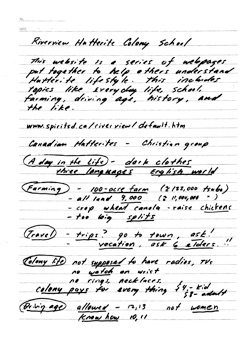 Riverview Hutterite Colony School
This website is a series of webpages
put together to help others understand
Hutterite lifestyle. This includes
topics like everyday life, school,
farming, driving age, history, and
the like.
www.spirited.ca/riverview/default.htm
Canadian Hutterites - Christian group
A day in the life - dark clothes
three languages English world
Farming - 100-acre farm
- all land 9,000
- crop wheat canola - raise chickens
- too big splits
Travel - trips? go to town, ask!
- vacation, ask 6 elders..!!
Colony life not supposed to have radios, TVs
no watch on wrist
no rings, necklaces
colony pays for every thing $4 - kid
$8 - adult
Driving age allowed - 12,13 not women
know how 10,11